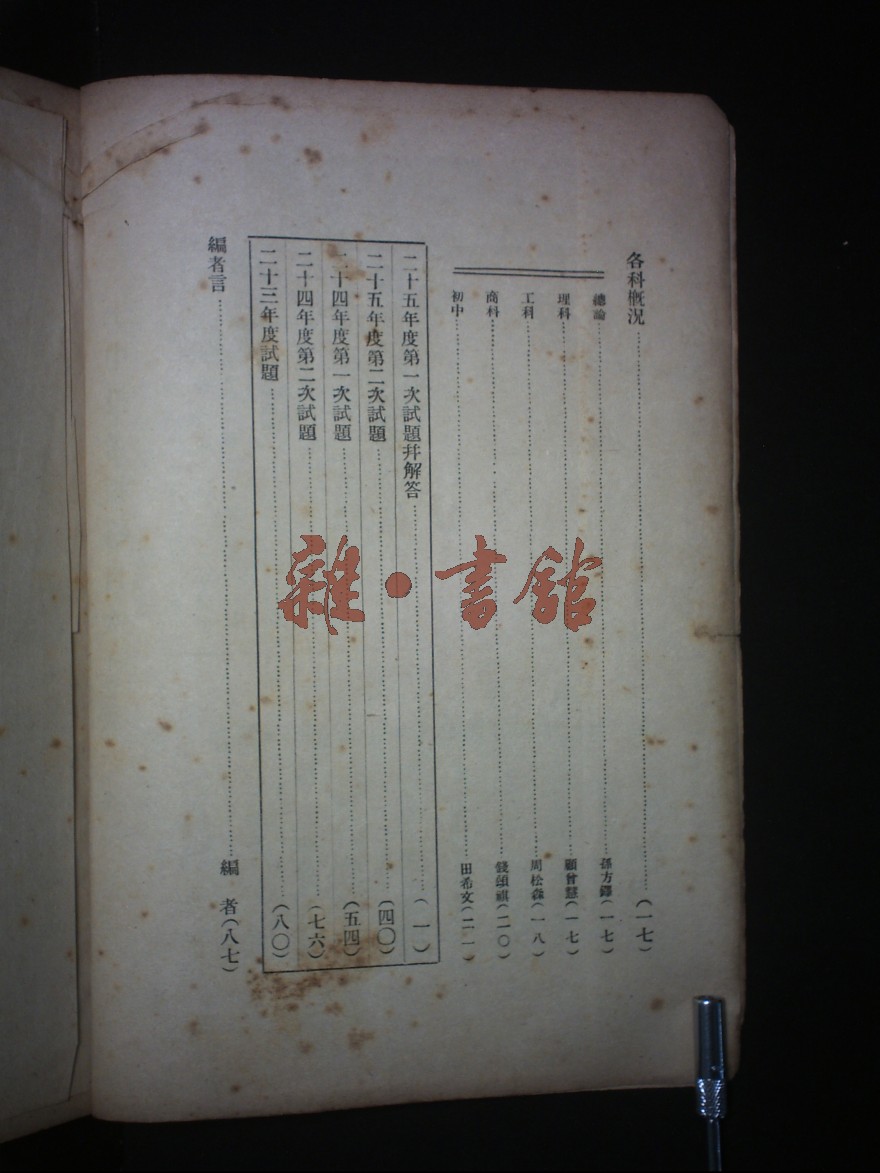 各科概況……(一七)
總論……孫方鐸(一七)
理科……顧曾慧(一七)
工科……周松森(一八)
商科……錢頌祺(二〇)
初中……田希文(二一)
二十五年度第一次試題幷解答……(一)
二十五年度第二次試題……(四〇)
二十四年度第一次試題……(五四)
二十四年度第二次試題……(七六)
二十三年度試題……(八〇)
編者言……編者(八七)
雜·書館